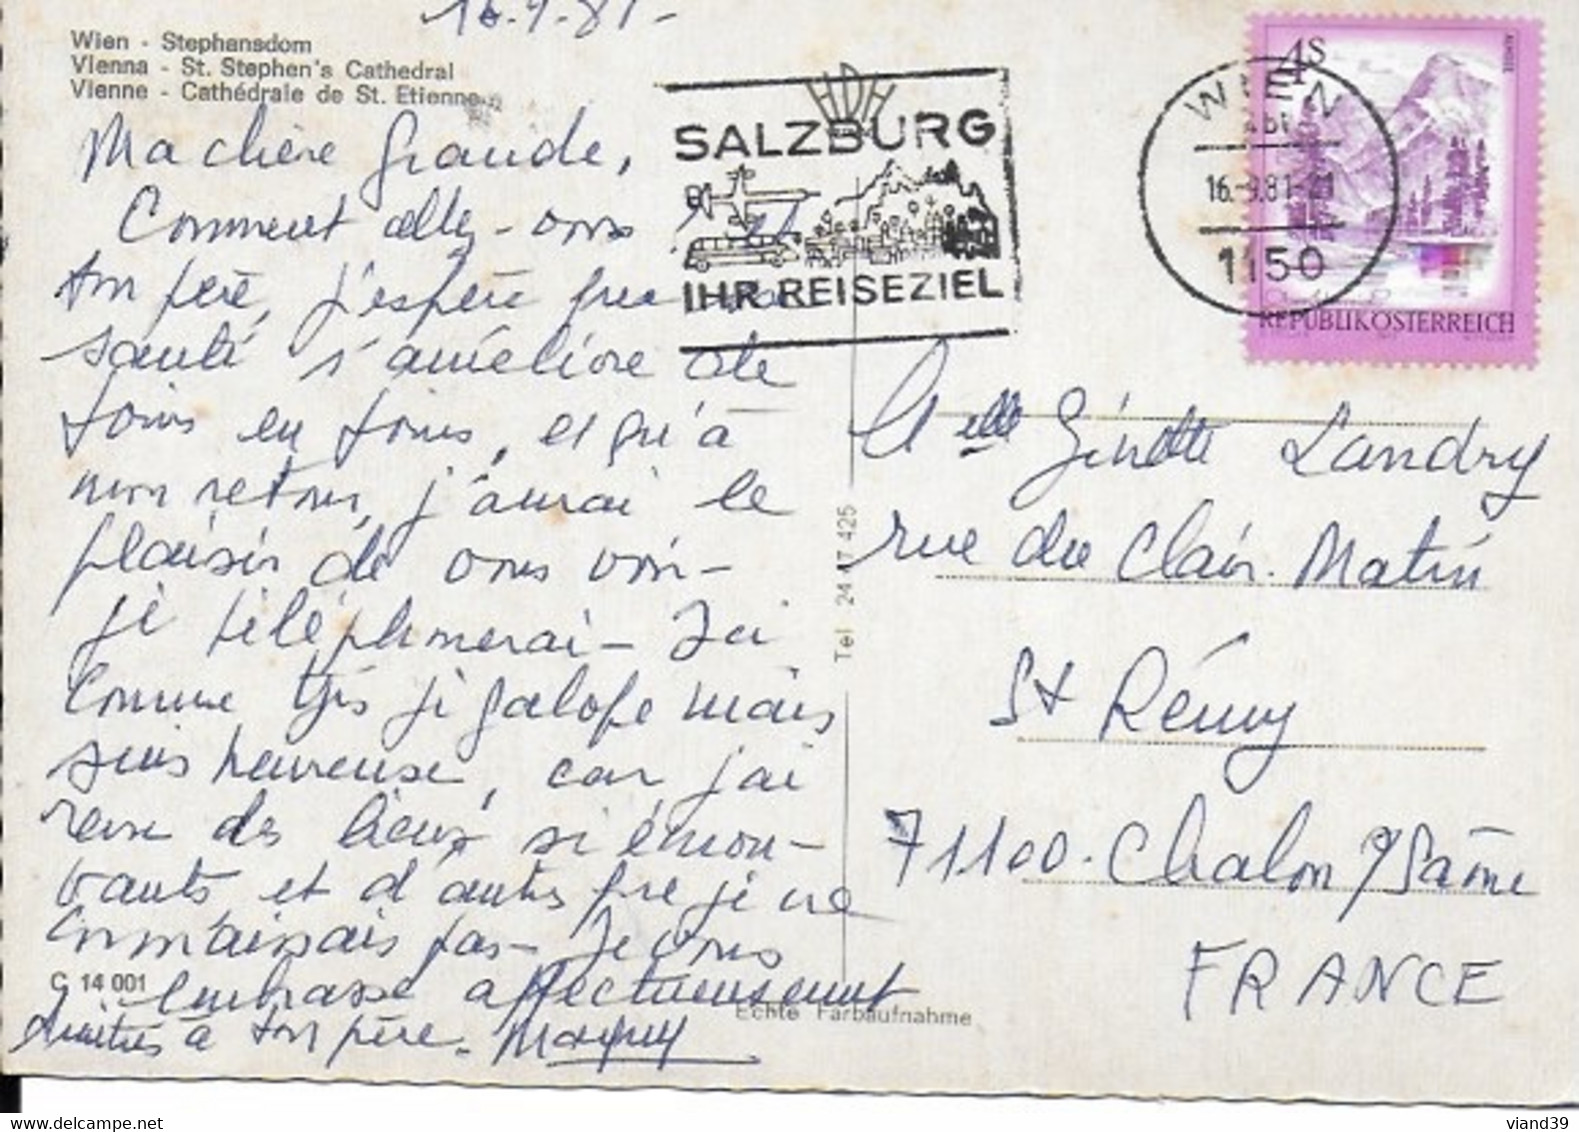 16.9.81-
Wien - Stephansdom
Vienna - St. Stephen's Cathedral
Vienne - Cathédrale de St. Etienne
Ma chère grande,
Comment allez-vous ? et
ton père, j'espère que sa
santé s'améliore de
jours en jours, et qu'à
mon retour, j'aurai le
plaisir de vous voir-
je téléphonerai - Ici
comme tjrs je galope mais
suis heureuse, car j'ai
revu des lieux si émou-
vants et d'autres que je ne
connaissais pas - Je vous
embrasse affectueusement
Amitiés à ton père.
C 14 001
Echte Farbaufnahme
Tel 24 47 425
HDH
SALZBURG
IHR REISEZIEL
WIEN
16.-9.81-21
1150
4S
REPUBLIK ÖSTERREICH
Melle Ginette Landry
rue du Clair. Matin
St Rémy
71100. Chalon s/Saône
FRANCE
viand39